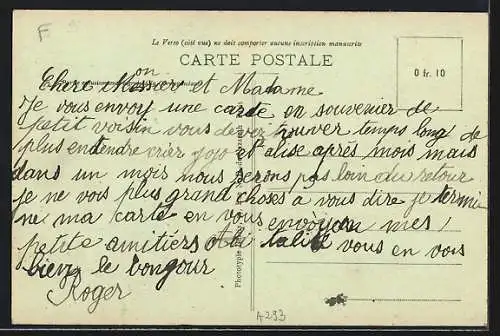 F
Le Verso (côté vue) ne doit comporter aucune inscription manuscrite
CARTE POSTALE
0 fr. 10
Chere Monsier et Madame
Je vous envoy une carte en souvenier de
petit voisin vous devez trouver temps long de
plus endendre crier jojo et alise après mois mais
dans un mois nous serons pas loin du retour
je ne vois plus grand choses a vous dire je termi
ne ma carte en vous envoyan mes
petite amitiers vous en vois
bien le bongour
Roger
A233